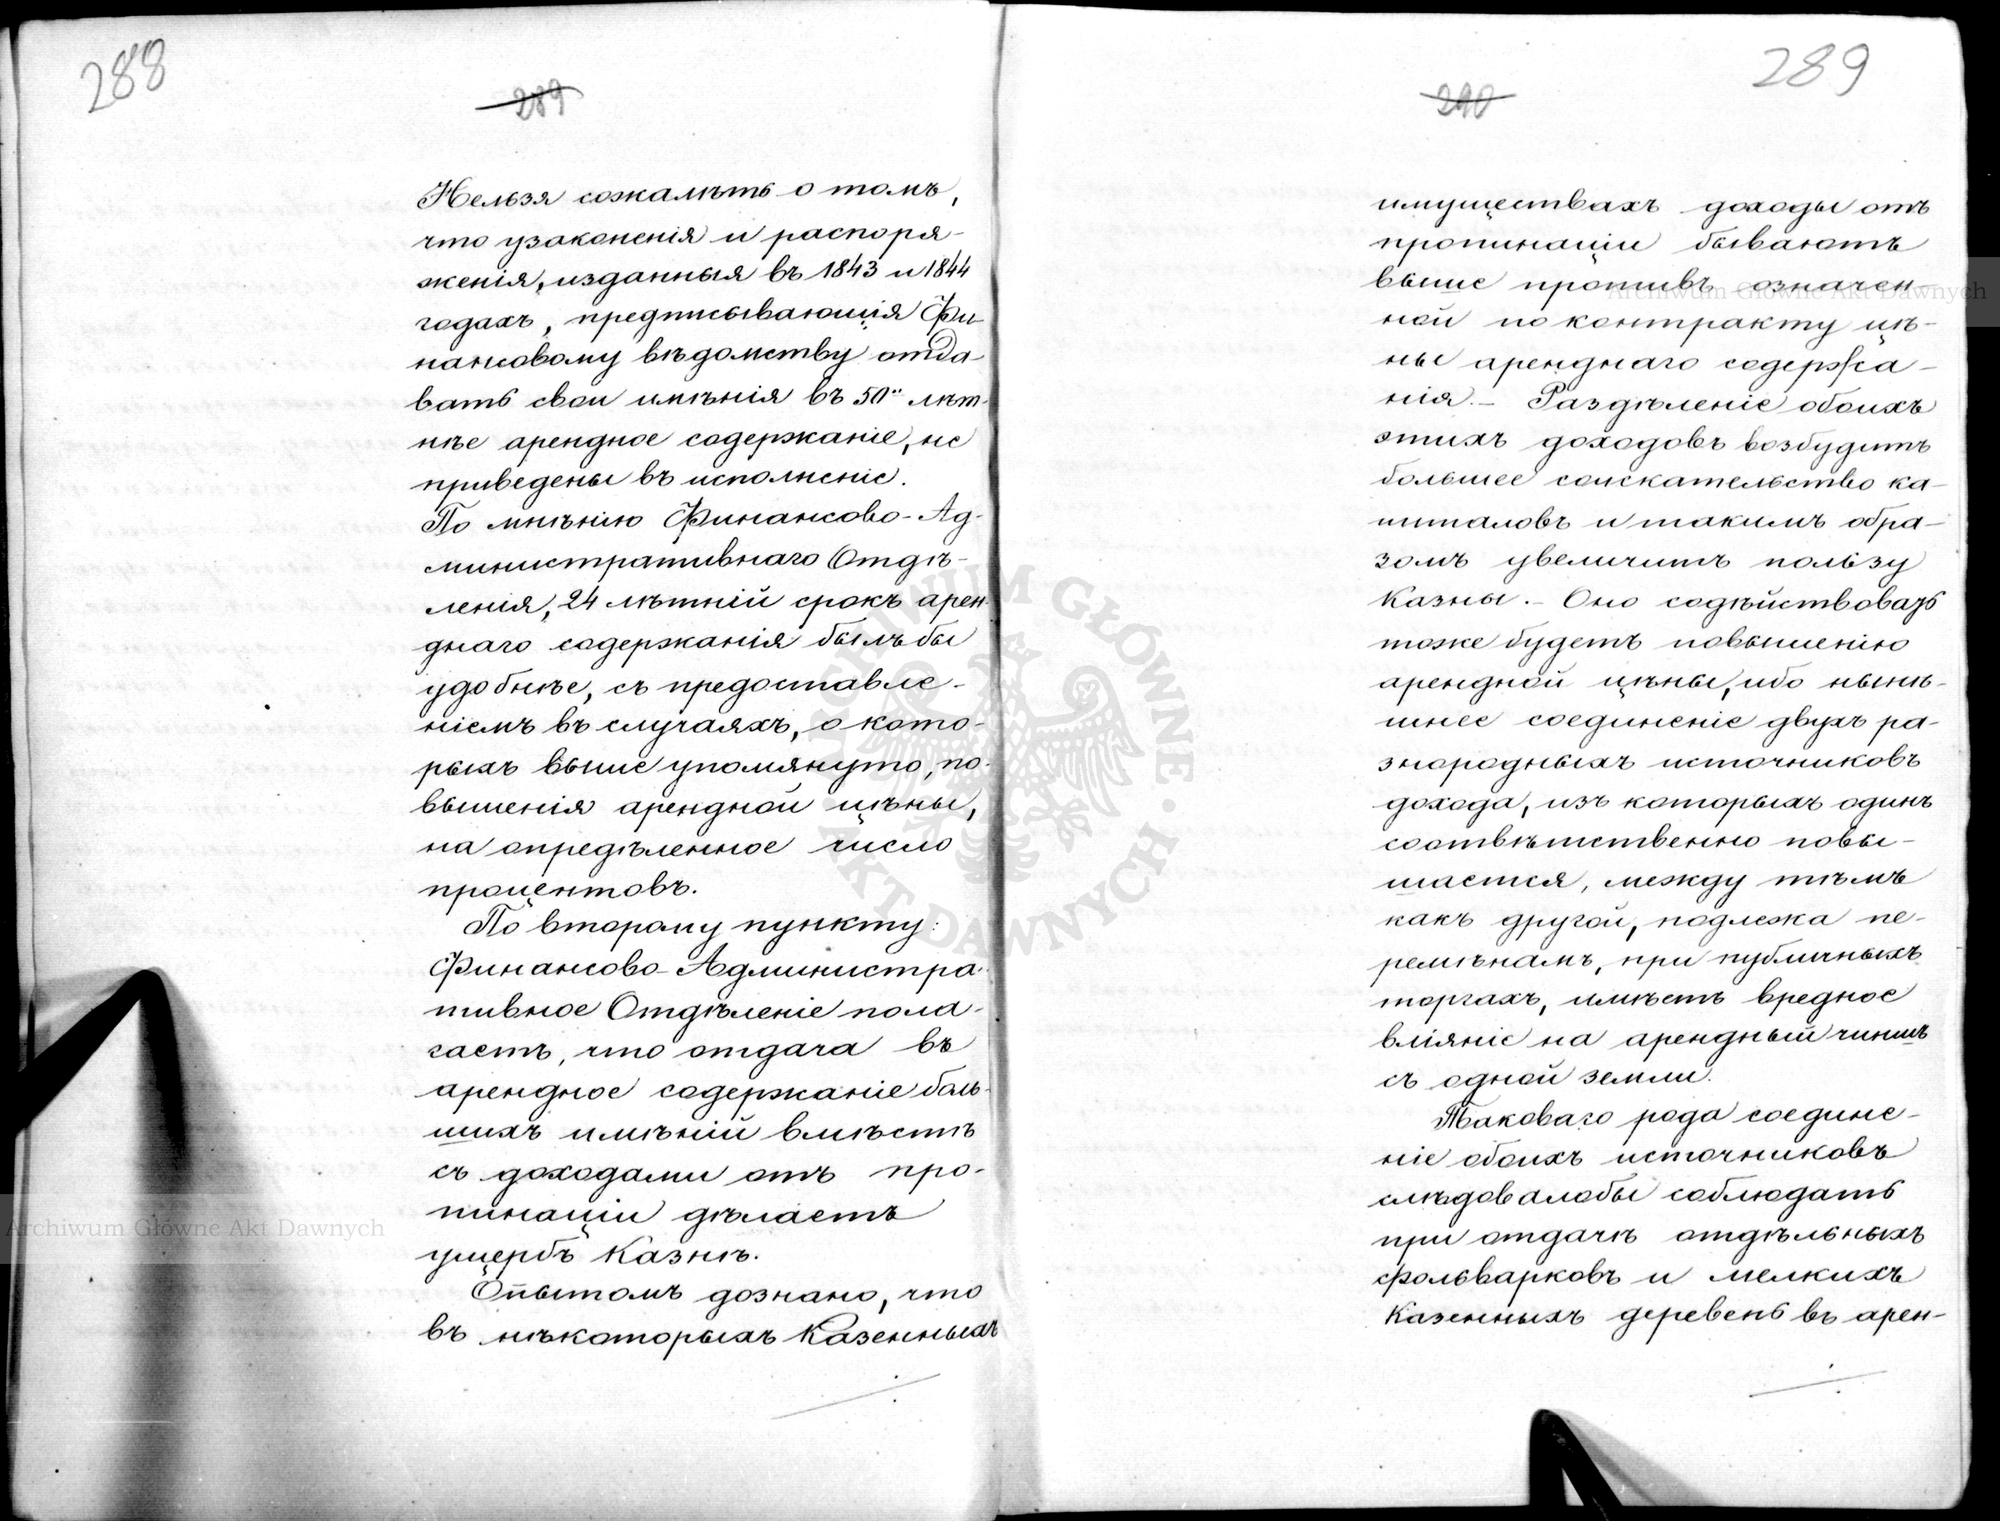 288
289
Нельзя сожалѣть о томъ,
что узаконенія и распоря-
женія, изданныя въ 1843 и 1844
годахъ, предписывающія Фи-
нансовому вѣдомству отда-
вать свои имѣнія въ 50и лѣт-
нѣе арендное содержаніе, не
приведены въ исполненіе.
По мнѣнію Финансово-Ад-
министративнаго Отдѣ-
ленія, 24 лѣтній срокъ арен-
днаго содержанія былъ бы
удобнѣе, съ предоставле-
ніемъ въ случаяхъ, о кото-
рыхъ выше упомянуто, по-
вышенія арендной цѣны,
на опредѣленное число
процентовъ.
По второму пункту:
Финансово-Администра-
тивное Отдѣленіе пола-
гаетъ, что отдача въ
арендное содержаніе боль-
шихъ имѣній вмѣстѣ
съ доходами отъ про-
пинаціи дѣлаетъ
ущербъ Казнѣ.
Опытомъ дознано, что
въ нѣкоторыхъ Казенныхъ
289
290
имуществахъ доходы отъ
пропинаціи бываютъ
выше противъ означен-
ной по контракту цѣ-
ны аренднаго содержа-
нія.- Раздѣленіе обоихъ
этихъ доходовъ возбудитъ
большее соискательство ка-
питаловъ и такимъ обра-
зомъ увеличитъ пользу
Казны.- Оно содѣйствовать
тоже будетъ повышенію
арендной цѣны, ибо нынѣ-
шнее соединеніе двухъ ра-
знородныхъ источниковъ
дохода, изъ которыхъ одинъ
соотвѣтственно повы-
шается, между тѣмъ
какъ другой, подлежа пе-
ремѣнамъ, при публичныхъ
торгахъ, имѣетъ вредное
вліяніе на арендный чиншъ
съ одной земли.
Таковаго рода соедине-
ніе обоихъ источниковъ
слѣдовалобы соблюдать
при отдачѣ отдѣльныхъ
фольварковъ и мелкихъ
Казенныхъ деревень въ арен-
ARCHIWUM GŁÓWNE AKT DAWNYCH
Archiwum Główne Akt Dawnych
Archiwum Główne Akt Dawnych